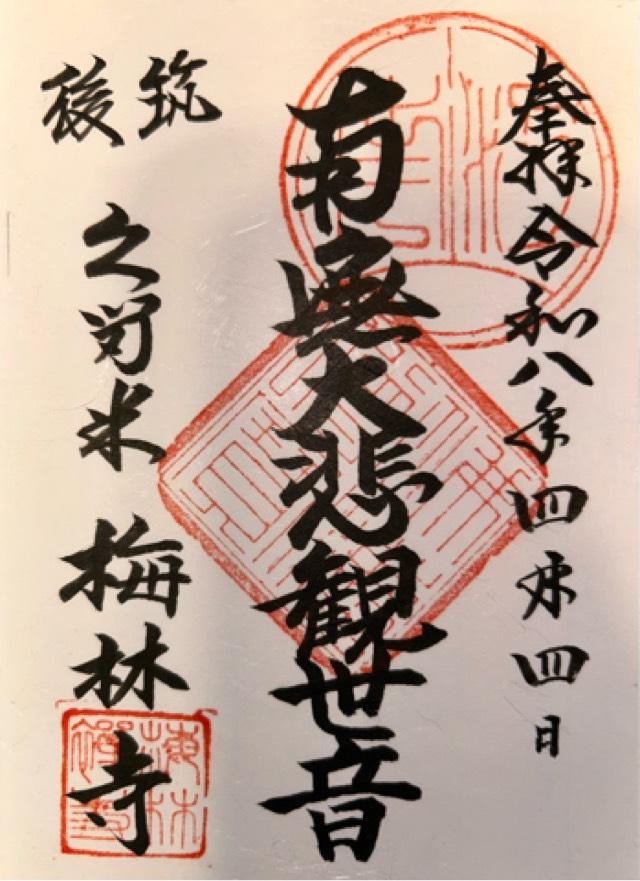 奉拝 令和八年四月四日
南無大悲観世音
筑後
久留米 梅林寺
梅林
禅寺